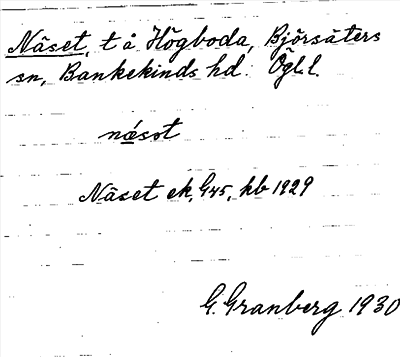 Näset, t å Högboda, Björsäters
sn, Bankekinds hd. Ögl. l.
næ̀sot
Näset ek, G45, kb 1929
G. Granberg 1930